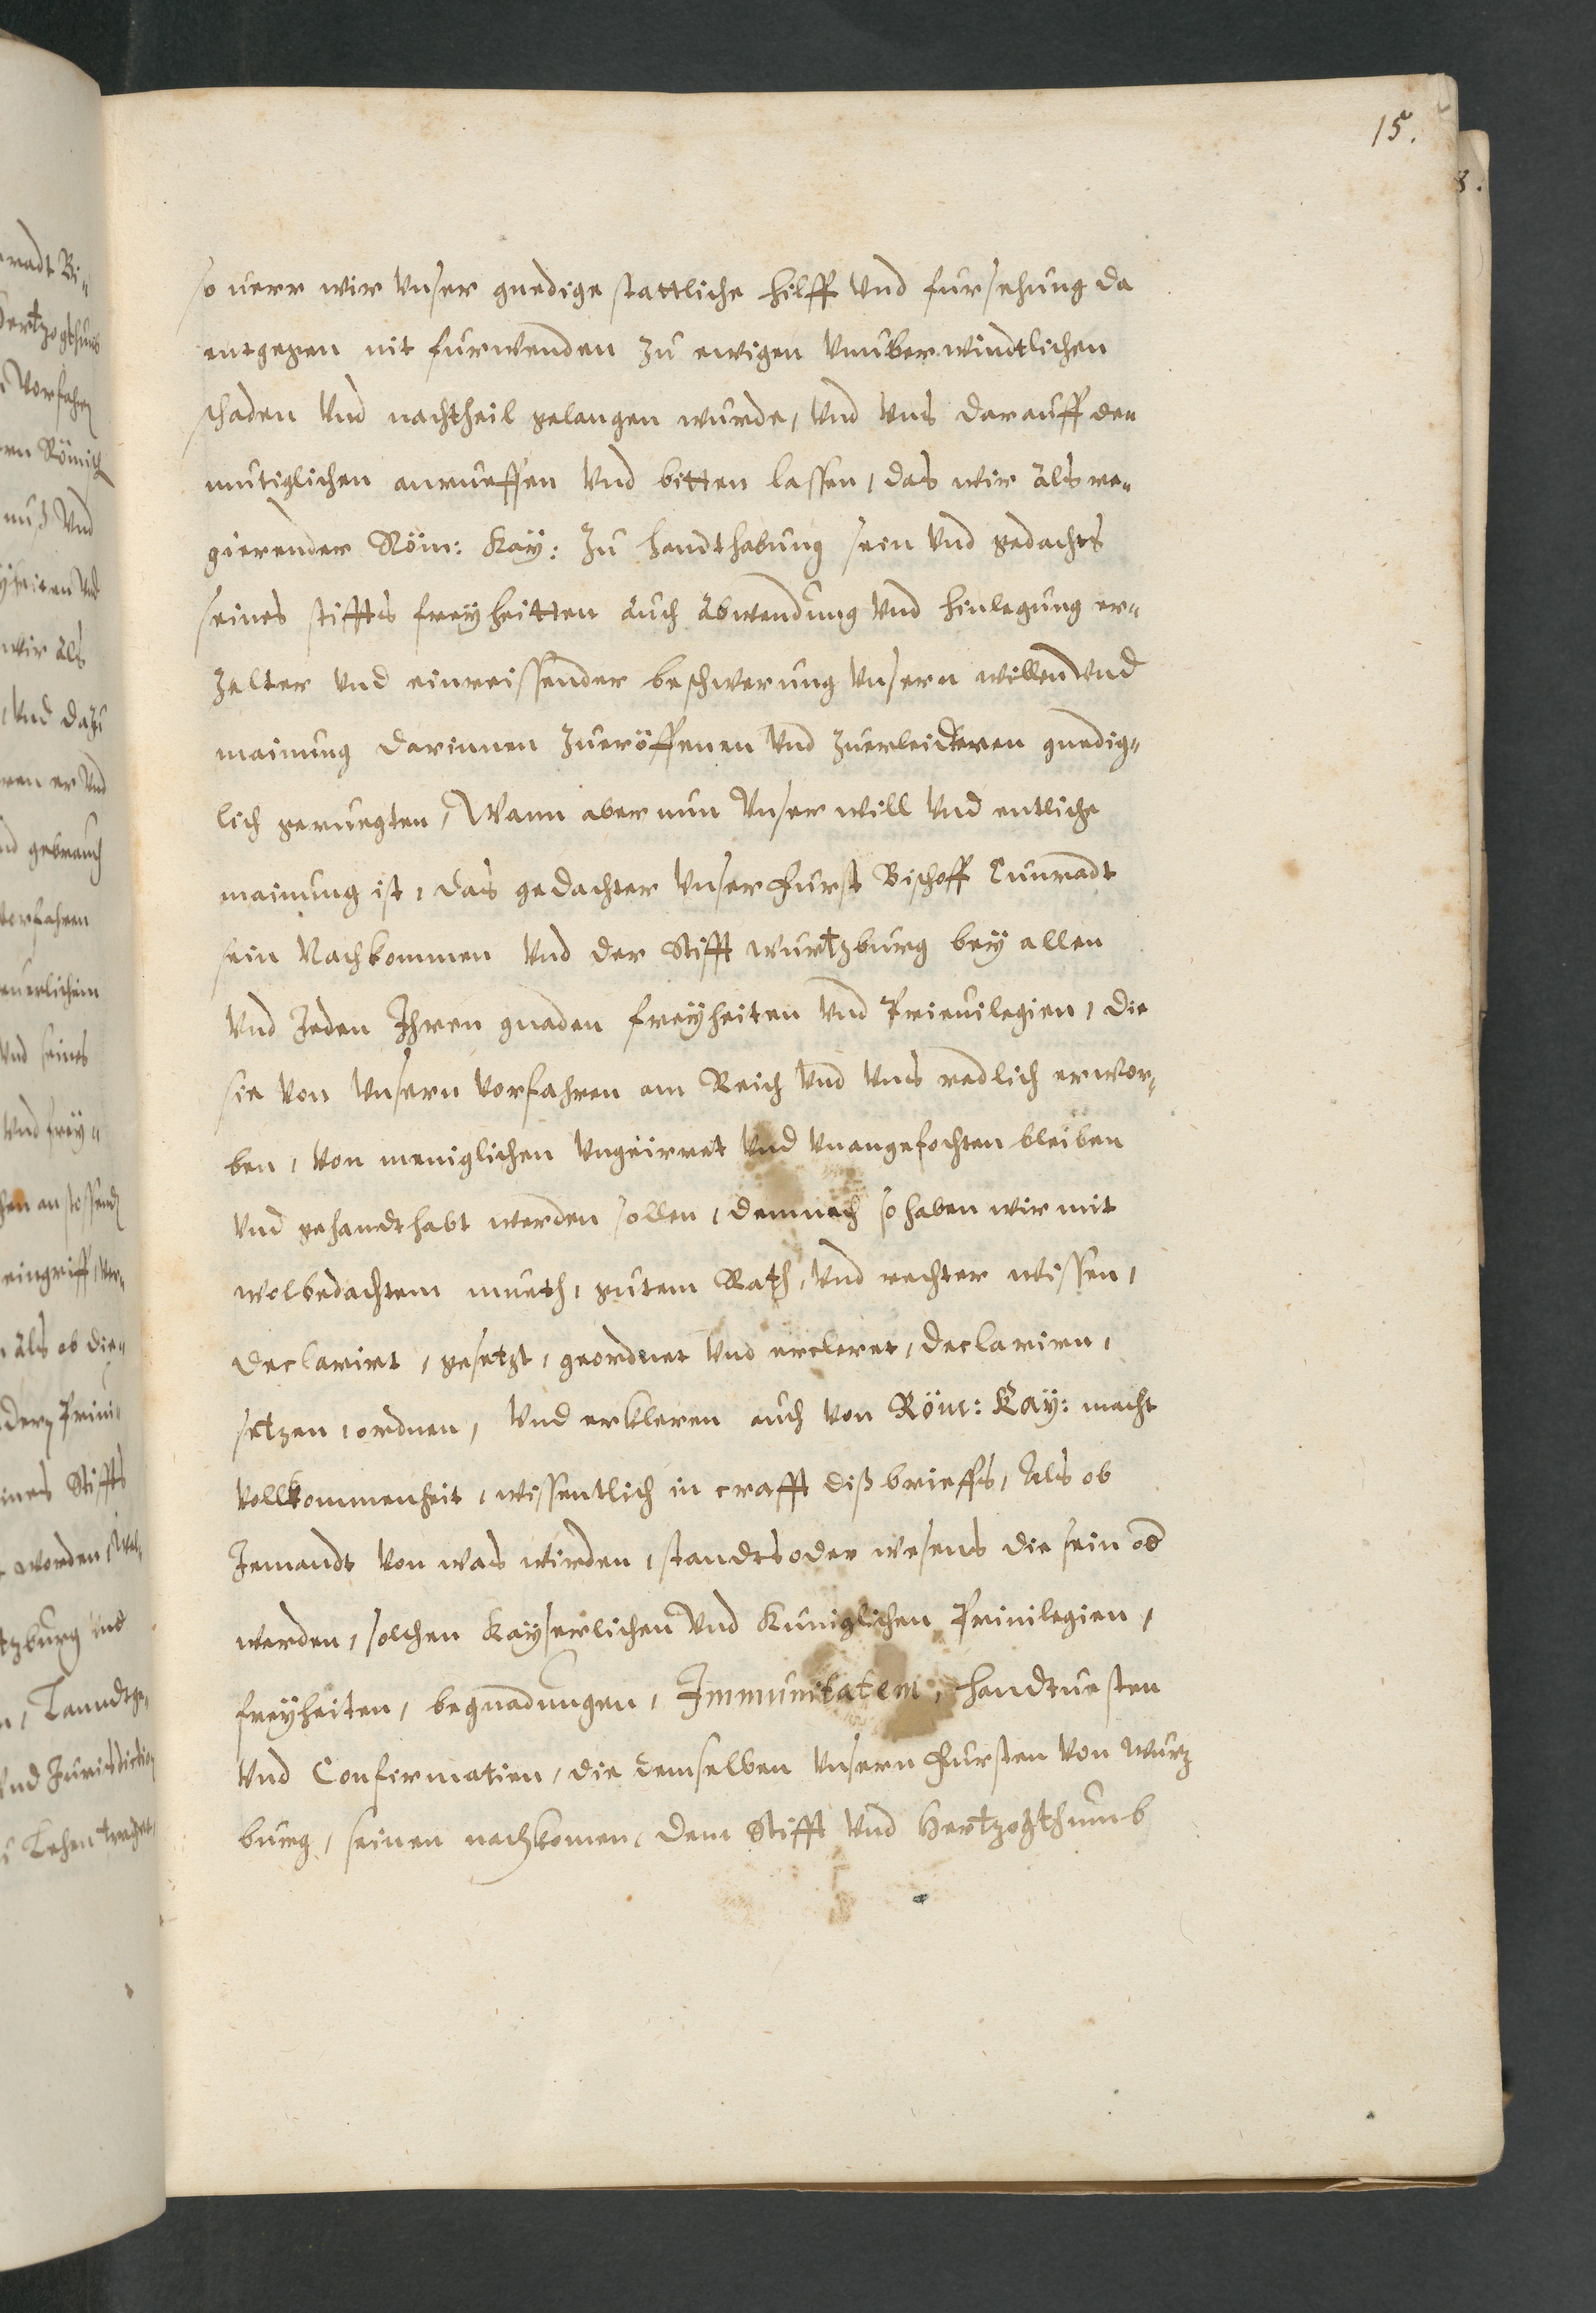 15.
so uerr wir Vnser gnedige stattliche hilff Vnd fursehung da
entgegen nit furwenden zu ewigen Vnuberwindtlichen
schaden Vnd nachtheil gelangen wurde, Vnd Vns darauff de=
mutiglichen anrueffen Vnd bitten lassen, das wir als re=
gierender Röm: Kaÿ: zu handthabung sein Vnd gedachts
seines stiffts freÿheitten auch abwendung Vnd hinlegung er=
zelter Vnd einreissender beschwerung Vnsern willen Vnd
mainung darinnen zueröffenen Vnd zuerleideren gnedig=
lich geruegten, Wann aber nun Vnser will Vnd entliche
mainung ist, das gedachter Vnser Furst Bischoff Cunradt
sein Nachkommen Vnd der Stifft wurtzburg beÿ allen
Vnd Jeden Ihren gnaden freÿheiten Vnd Priuilegien, die
sie Von Vnsern Vorfahren am Reich Vnd Vns redlich erwor=
ben, Von meniglichen Vngeirret Vnd Vnangefochten bleiben
Vnd gehandthabt werden sollen, demnach so haben wir mit
wolbedachtem mueth, gutem Rath, Vnd rechter wissen,
declarirt, gesetzt, geordnet Vnd ercleret, declariren,
setzen, ordnen, Vnd erkleren auch Von Röm: Kaÿ: macht
Vollkommenheit, wissentlich in crafft diß brieffs, Als ob
Jemandt Von was wirden, standts oder wesens die sein od
werden, solchen Kaÿserlichen Vnd Kuniglichen Priuilegien,
freÿheiten, begnadungen, Immunitatem, handtuesten
Vnd Confirmatien, die demselben Vnsern Fursten Von wurtz
burg, seinen nachkomen, dem Stifft Vnd Hertzogthumb